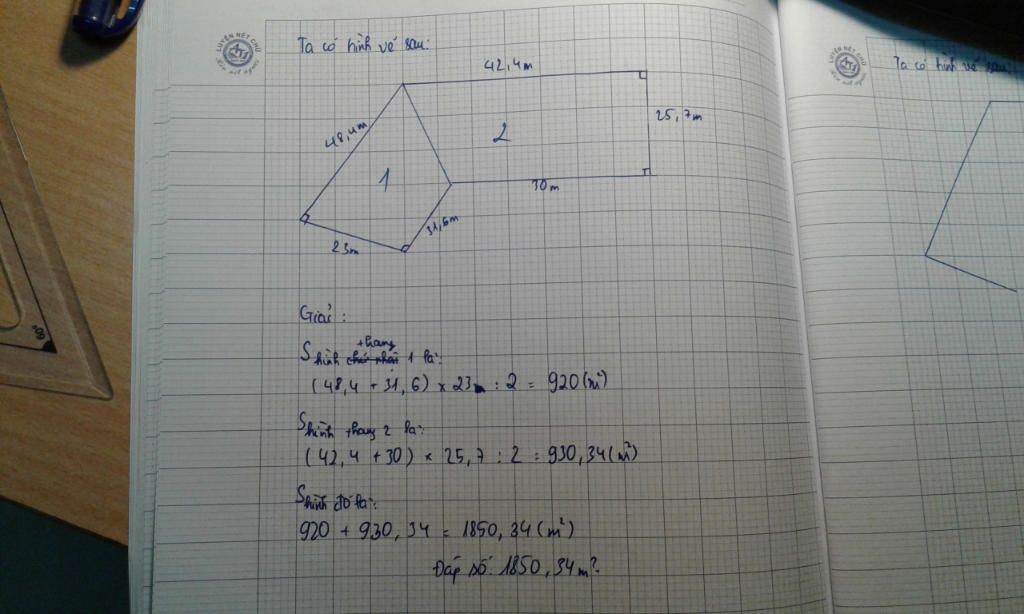 LUYỆN NÉT CHỮ
Ta có hình vẽ sau:
42,4m
48,4m
25,7m
2
1
30m
31,6m
23m
Giải:
thang
S hình chữ nhật 1 là:
(48,4 + 31,6) x 23 : 2 = 920 (m²)
S hình thang 2 là:
(42,4 + 30) x 25,7 : 2 = 930,34 (m²)
S hình đó là:
920 + 930,34 = 1850,34 (m²)
Đáp số: 1850,34 m²
LUYỆN NÉT CHỮ
Ta có hình vẽ sau: